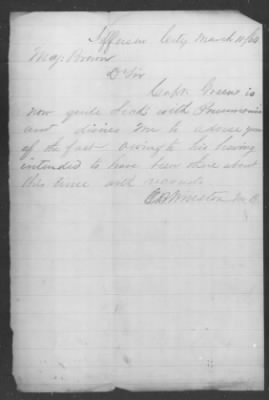 Jefferson City March 11/64
Maj. Brown
Dr Sir
Capt. Greene is
now quite Sick with Pneumonia
and desires me to advise you
of the fact owing to his having
intended to have been there about
this time with recruits
Winston M.D.